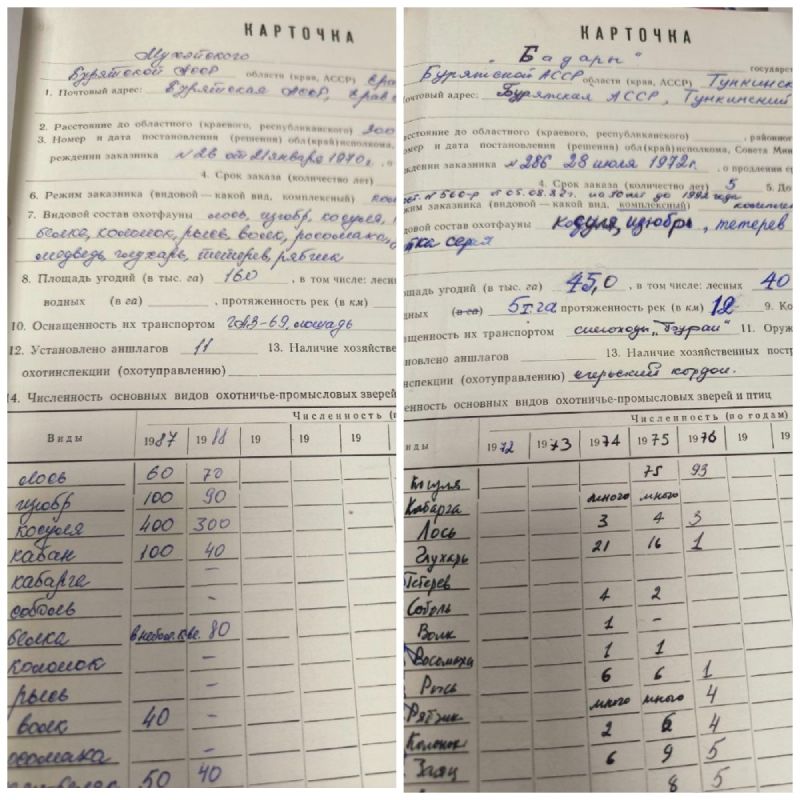 КАРТОЧКА
Мухейского
Бурятской АССР области (края, АССР)
1. Почтовый адрес: Бурятская АССР,
2. Расстояние до областного (краевого, республиканского) 300
3. Номер и дата постановления (решения) обл(край)исполкома,
рождении заказника №26 от 21 января 1970 г.
4. Срок заказа (количество лет)
6. Режим заказника (видовой — какой вид, комплексный)
7. Видовой состав охотфауны лось, изюбр, косуля,
белка, колонок, рысь, волк, росомаха,
медведь, глухарь, тетерев, рябчик
8. Площадь угодий (в тыс. га) 160, в том числе: лесн
водных (в га) , протяженность рек (в км)
10. Оснащенность их транспортом ГАЗ-69, лошадь
12. Установлено аншлагов 11 13. Наличие хозяйстве
охотинспекции (охотуправлению)
4. Численность основных видов охотничье-промысловых зверей
Численность (п
Виды 1987 1988 19 19 19
лось 60 70
изюбр 100 90
косуля 400 300
кабан 100 40
кабарга –
соболь –
белка в небол. к-ве. 80
колонок –
рысь –
волк 40 –
росомаха –
50 40
КАРТОЧКА
"Бадары" государст
Бурятской АССР области (край, АССР) Тункинск
очтовый адрес: Бурятская АССР, Тункинский
сстояние до областного (краевого, республиканского) , районног
омер и дата постановления (решения) обл(край)исполкома, Совета Мин
ждении заказника №286 28 июля 1972г. , о продлении
4. Срок заказа (количество лет) 5 5. До
№ 560-р от 05.08.82г. на 10 лет до 1992 года
жим заказника (видовой — какой вид, комплексный)
довой состав охотфауны косуля, изюбрь, тетерев
тка серая
ощадь угодий (в тыс. га) 45,0, в том числе: лесных 40
дных (в га) 5 т.га протяженность рек (в км) 12 9. Ко
ащенность их транспортом снегоход "Буран" 11. Оруж
новлено аншлагов 13. Наличие хозяйственных постр
инспекции (охотуправлению) егерьский кордон.
енность основных видов охотничье-промысловых зверей и птиц
Численность (по годам)
иды 1972 1973 1974 1975 1976 19 19
Косуля 75 93
Кабарга много много
Лось 3 4 3
Глухарь 21 16 1
Тетерев
Соболь 4 2
Волк 1 –
Росомаха 1 1
Рысь 6 6 1
Рябчик много много 4
Колонок 2 6 4
Заяц 6 9 5
8 5